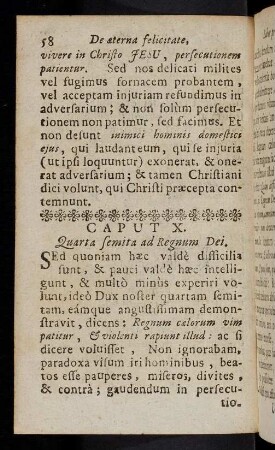 58 De æterna felicitate,
vivere in Christo JESU, persecutionem
patientur. Sed nos delicati milites
vel fugimus fornacem probantem,
vel acceptam injuriam refundimus in
adversarium; & non solùm persecu-
tionem non patimur, sed facimus. Et
non desunt inimici hominis domestici
ejus, qui laudant eum, qui se injuria
(ut ipsi loquuntur) exonerat, & one-
rat adversarium; & tamen Christiani
dici volunt, qui Christi præcepta con-
temnunt.
CAPUT X.
Quarta semita ad Regnum Dei.
SEd quoniam hæc valdè difficilia
sunt, & pauci valdè hæc intelli-
gunt, & multò minùs experiri vo-
lunt, ideò Dux noster quartam semi-
tam, eámque angustissimam demon-
stravit, dicens: Regnum cælorum vim
patitur, & violenti rapiunt illud: ac si
dicere voluisset, Non ignorabam,
paradoxa visum iri hominibus, bea-
tos esse pauperes, miseros, divites,
& contrà; gaudendum in persecu-
tio-